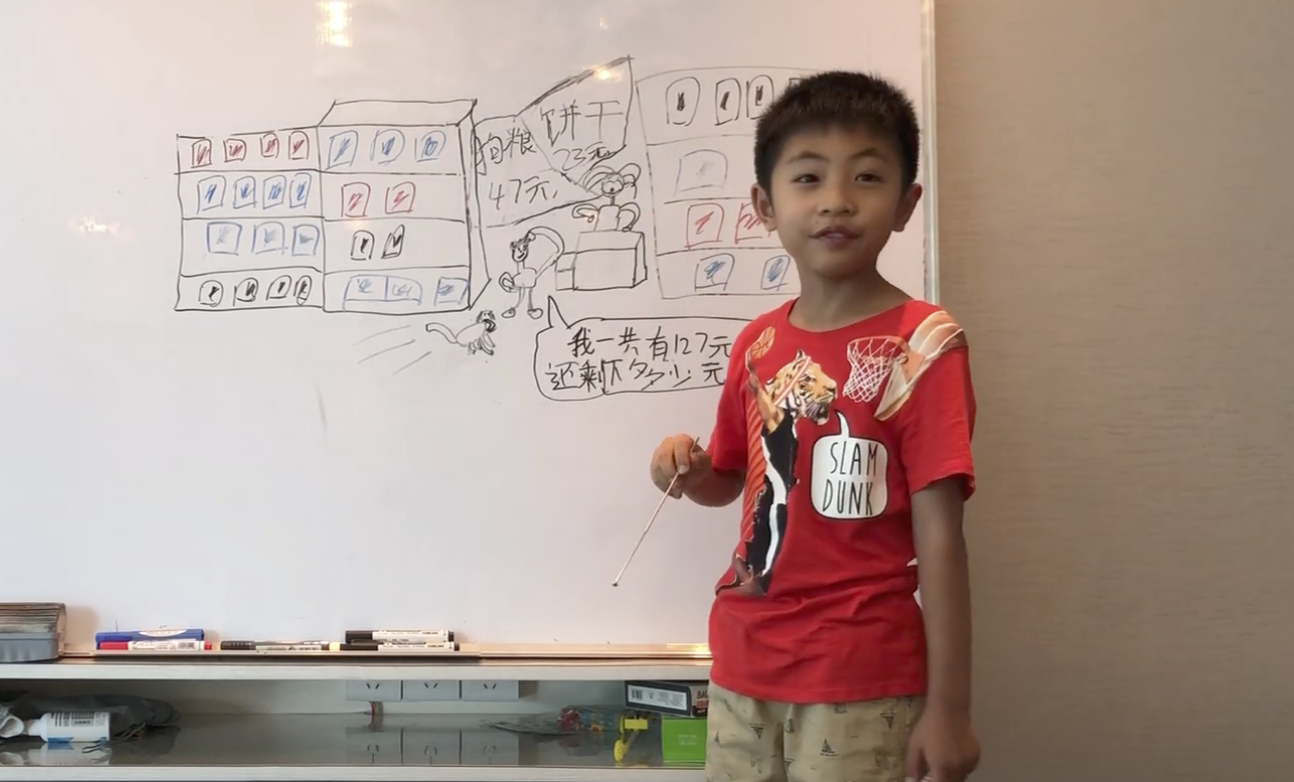 狗粮
47元
饼干
23元
我一共有127元
还剩下多少元
SLAM
DUNK